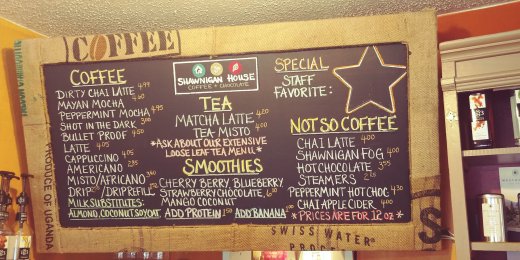 COFFEE
COFFEE
DIRTY CHAI LATTE 4.99
MAYAN MOCHA 4.60
PEPPERMINT MOCHA 4.95
SHOT IN THE DARK 3.00
BULLET PROOF 4.50
LATTE 4.05
CAPPUCCINO 4.05
AMERICANO 2.85
MISTO/AFRICANO
DRIP DRIP REFILL
MILK SUBSTITUTES:
ALMOND, COCONUT, SOY, OAT
SHAWNIGAN HOUSE
COFFEE + CHOCOLATE
TEA
MATCHA LATTE 4.60
TEA MISTO 4.00
*ASK ABOUT OUR EXTENSIVE
LOOSE LEAF TEA MENU*
SMOOTHIES
CHERRY BERRY, BLUEBERRY,
STRAWBERRY CHOCOLATE,
MANGO COCONUT
ADD PROTEIN ADD BANANA
SPECIAL
STAFF
FAVORITE:
NOT SO COFFEE
CHAI LATTE 4.00
SHAWNIGAN FOG 4.00
HOT CHOCOLATE 3.55
STEAMERS 2.65
PEPPERMINT HOT CHOC 4.30
CHAI APPLE CIDER 4.00
*PRICES ARE FOR 12 oz*
PRODUCE OF UGANDA
SWISS WATER